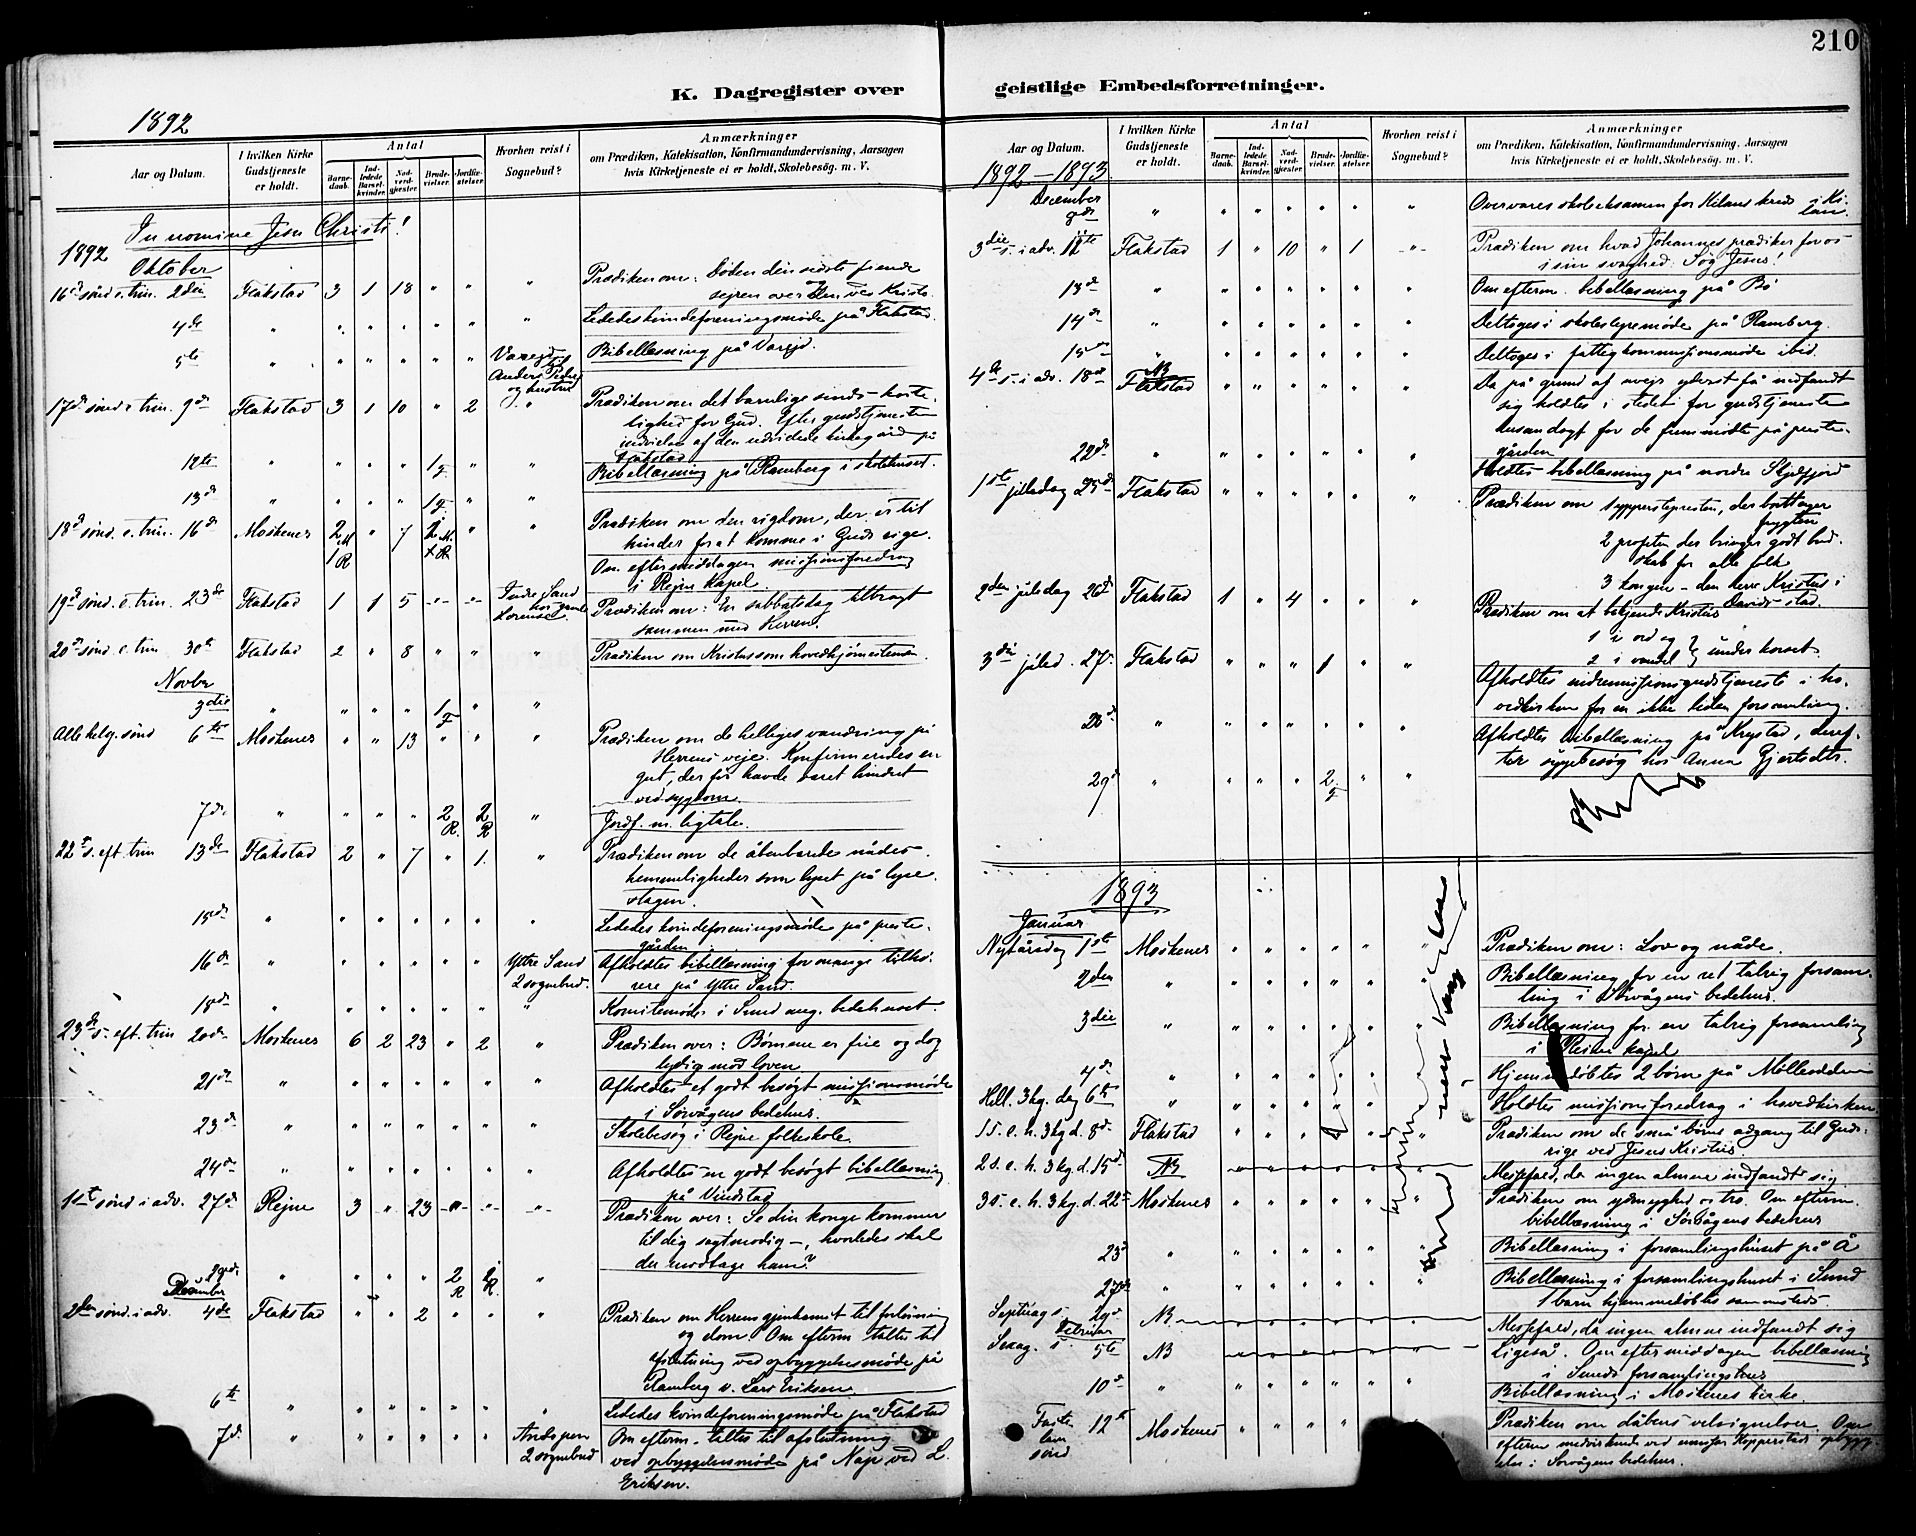 210
K. Dagregister over geistlige Embedsforretninger.
1892
Aar og Datum.
I hvilken Kirke Gudstjeneste er holdt.
Antal
Barnedaab.
Indledede Barselkvinder.
Nadverdgjester.
Brudevielser.
Jordfæstelser.
Hvorhen reist i Sognebud?
Anmærkninger
om Prædiken, Katekisation, Konfirmandundervisning, Aarsagen
hvis Kirketjeneste ei er holdt, Skolebesög. m. V.
In nomine Jesu Christi!
1892
Oktober
16de sönd e. trin. 2den Flakstad 3 1 18 " " " Prædiken om: Döden den sidste fiende
sejren over den ved Kristo.
4de " " " " " " " Lededes kvindeforeningsmöde på Flakstad.
5te " " " " " " Bibellæsning på Vareid.
og hustru
17de sönd e. trin. 9de Flakstad 3 1 10 " 2 " Prædiken om det barnlige sinds koste-
lighed for Gud. Efter gudstjenesten
indvielse af den udvidede kirkegård på
Flakstad
12te " " " " 1 F " " Bibellæsning på Ramberg i skolehuset.
13de " " " " 1 F " "
18de sönd. e. trin. 16de Moskenes 2 M 1 R " 7 " " Prædiken om den rigdom, der er til
hinder for at komme i Guds rige.
Om eftermiddagen missionsforedrag
i Rejne kapel.
19de sönd. e. trin. 23de Flakstad 1 1 5 " " Indre Sand Prædiken om: En sabbatsdag tilbragt
sammen med Herren.
20de sönd. e. trin 30te Flakstad 2 " 8 " " " Prædiken om Kristus som hovedhjörnestenen
Novbr
3die " " " " 1 F " "
Alle helg. sönd 6te Moskenes " " 13 " " " Prædiken om de helliges vandring på
Herrens veje. Konfirmeredes en
gut, der för havde været hindret
ved sygdom.
7de " " " " 2 R. 2 R " Jordf. m. ligtale.
22de s. eft. trin 13de Flakstad 2 " 7 " 1. " Prædiken om de åbenbarede nådes-
hemmeligheder som lyset på lyse-
stagen.
15de " " " " " " " Lededes kvindeforeningsmöde på preste-
gården
16de " " " " " " Yttre Sand 2 sognebud. Afholdtes bibellæsning for mange tilhö-
rere på Yttre Sand.
18de " " " " " " " Komitemöde i Sund ang. bedehuset.
23de s. eft. trin 20de Moskenes 6 2 23 " 2 " Prædiken over: Börnene er frie og dog
lydige mod loven
21de " " " " " " " Afholdtes et godt besögt missionsmöde
i Sörvågens bedehus.
23de " " " " " " " Skolebesög i Rejne folkeskole.
24de " " " " " " " Afholdtes en godt besögt bibellæsning
på Vindstad
1ste sönd i adv. 27de Rejne 3 " 23 " " " Prædiken over: Se din konge kommer
til dig sagtmodig —, hvorledes skal
du modtage ham?
29de " " " " 2 R 2 R. "
December
2den sönd. i adv. 4de Flakstad " " 2 " " " Prædiken om Herrens gjenkomst til forlösning
og dom. Om efterm. taltes til
afslutning ved opbyggelsesmöde på
Ramberg v. Lars Eriksen.
6te " " " " " " " Lededes kvindeforeningsmöde på Flakstad
7de " " " " " " 2 sognebud Om efterm. taltes til afslutning
ved opbyggelsesmöde på Nap ved L.
Eriksen.
Aar og Datum.
I hvilken Kirke Gudstjeneste er holdt.
Antal
Barnedaab.
Indledede Barselkvinder.
Nadverdgjester.
Brudevielser.
Jordfæstelser.
Hvorhen reist i Sognebud?
Anmærkninger
om Prædiken, Katekisation, Konfirmandundervisning, Aarsagen
hvis Kirketjeneste ei er holdt, Skolebesög. m. V.
1892 – 1893
December
9de " " " " " " " Overvares skoleeksamen for Kilans kreds i Ki-
lan.
3die s. i adv. 11te Flakstad 1 " 10 " 1 " Prædiken om hvad Johannes prædiker for os
i sin svaghed: Søg Jesus!
13de " " " " " " " Om efterm. bibellæsning på Bö
14de " " " " " " " Deltoges i skolestyremöde på Ramberg.
15de " " " " " " " Deltoges i fattigkommissionsmöde ibid.
4de s. i adv. 18de NB Flakstad " " " " " " Da på grund af uvejr yderst få indfandt
sig holdtes i stedet for gudstjeneste
husandagt for de fremmödte på preste-
gården
22de " " " " " " " Holdtes bibellæsning på nordre Skjelfjord
1ste juledag 25de Flakstad " " " " " " Prædiken om 1 ypperstepresten, der borttager
frygten
2 profeten der bringer godt bud-
skab for alle folk
3 kongen – den herre Kristus i
Davids stad.
2den juledag 26de Flakstad 1 " 4 " " " Prædiken om at bekjende Kristus
1 i ord og
2 i vandel } under korset.
3die juled. 27de Flakstad " " " 1 " " Afholdtes indremissionsgudstjeneste i ho-
vedkirken for en ikke liden forsamling.
28de " " " " " " " Afholdtes bibellæsning på Krystad, deref-
ter sygebesög hos Anna Gjertsdtr.
29de " " " " 2 F " "
1893
Januar
Nytårsdag 1ste Moskenes " " " " " " Prædiken om: Lov og nåde.
2den " " " " " " " Bibellæsning for en ret talrig forsam-
ling i Sörvågens bedehus.
3die " " " " " " " Bibellæsning for en talrig forsamling
i Reine kapel
4de " " " " " " Hjemmedöbtes 2 börn på Mölleodden
Hell. 3 kg. dag 6te " " " " " " Holdtes missionsforedrag i hovedkirken.
1 s. e. h. 3 kg d. 8de Flakstad " " " " " Prædiken om de små börns adgang til Guds-
rige ved Jesus Kristus
2 s. e. h. 3 kg. d. 15de NB " " " " " Messefald, da ingen almue indfandt sig
3 s. e. h. 3 kg. d. 22de Moskenes " " " " " Prædiken om ydmyghed og tro. Om efterm.
bibellæsning i Sörvågens bedehus
23de " " " " " " " Bibellæsning i forsamlingshuset på Å
27de " " " " " " " Bibellæsning i forsamlingshuset i Sund
1 barn hjemmedöbtes sammesteds.
Septuag. s. 29de NB. Messefald, da ingen almue indfandt sig
Februar
Sexag. s. 5te NB Ligeså. Om eftermiddagen bibellæsning
i Sunds forsamlingshus
10de " " " " " " " Bibellæsning i Moskenes kirke.
Fastelavns sönd 12te Moskenes " " " " Prædiken om dåbens velsignelser. Om
efterm medvirkende ved Kopperstads opbygg-
else i Sörvågens bedehus.